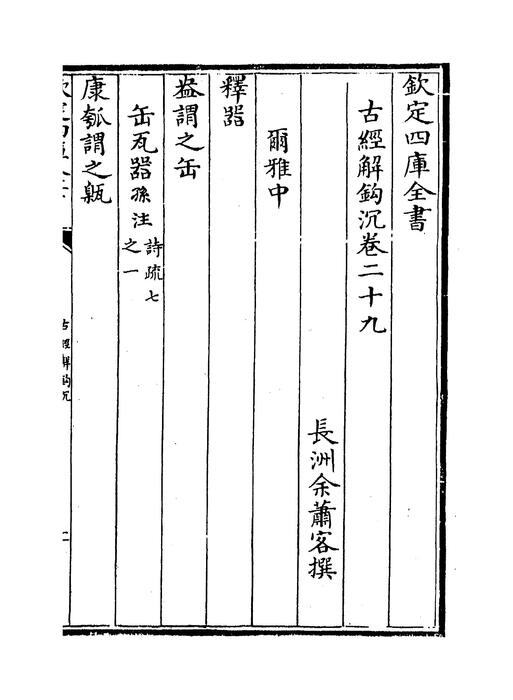 欽定四庫全書
古經解鈎沉卷二十九
長洲余蕭客撰
爾雅中
釋器
盎謂之缶
缶瓦器孫注詩疏七之一
康瓠謂之甈
欽定四庫全書
古經解鈎沉